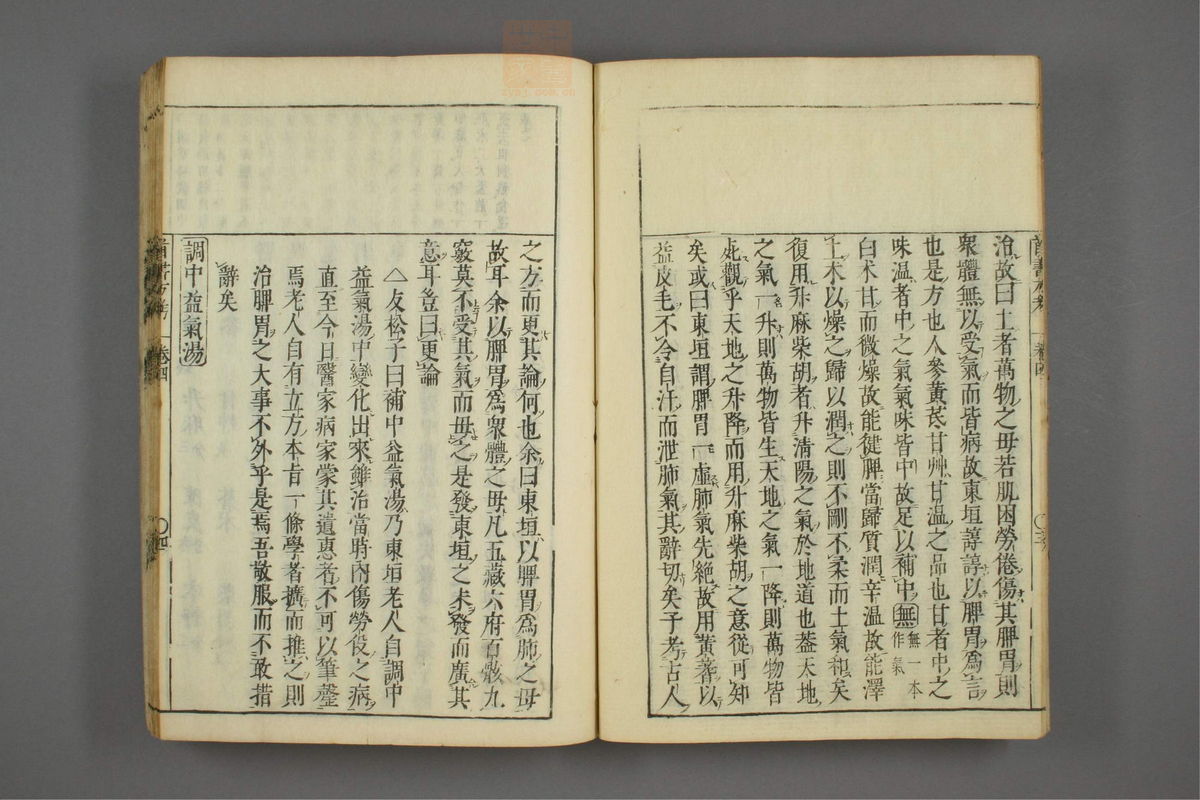 治故曰土者萬物之母若肌困勞倦傷其脾胃則
衆體無以受氣而皆病故東垣諄諄以脾胃爲言
也是方也人參黃芪甘艸甘溫之品也甘者中之
味温者中之氣氣味皆中故足以補中無無一本作氣
白朮甘而微燥故能健脾當歸質潤辛温故能澤
土朮以燥之歸以潤之則不剛不柔而土氣和矣
復用升麻柴胡者升清陽之氣於地道也葢天地
之氣一升則萬物皆生天地之氣一降則萬物皆
死觀乎天地之升降而用升麻柴胡之意從可知
矣或曰東垣謂脾胃一虛肺氣先絕故用黃蓍以
益皮毛不令自汗而泄肺氣其辭切矣予考古人
之方而更其論何也余曰東垣以脾胃爲肺之母
故耳余以脾胃爲衆體之母凡五藏六府百骸九
竅莫不受其氣而母之是發東垣之未發而廣其
意耳豈曰更論
△友松子曰補中益氣湯乃東垣老人自調中
益氣湯中變化出來雖治當時內傷勞役之病
直至今日醫家病家蒙其遺惠者不可以筆罄
焉老人自有立方本旨一條學者擴而推之則
治脾胃之大事不外乎是焉吾敬服而不敢措
辭矣
調中益氣湯
卷四